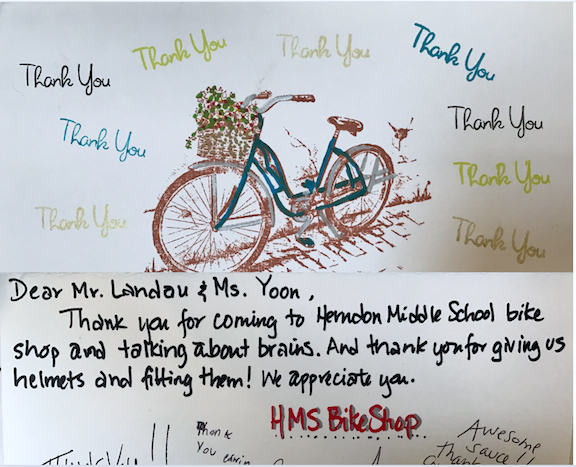 Thank You
Thank You
Thank You
Thank You
Thank You
Thank You
Thank You
Thank You
Thank You
Dear Mr. Landau & Ms. Yoon,
Thank you for coming to Herndon Middle School bike
shop and talking about brains. And thank you for giving us
helmets and fitting them! We appreciate you.
HMS Bike Shop
Thank
You
Awesome
sauce!!